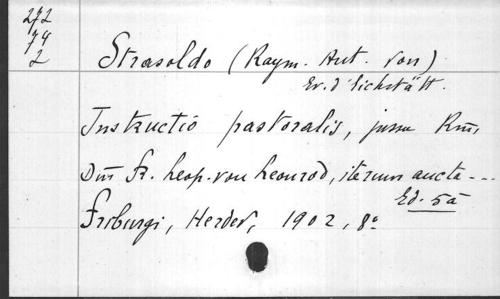 272
74
2
Strasoldo (Raym. Ant. von)
Ev. d'Eichstätt.
Instructio pastoralis, jussu Rmi,
Dni Fr. Leop. von Leonrod, iterum aucta ---
Ed. 5a
Friburgi, Herder, 1902, 8°